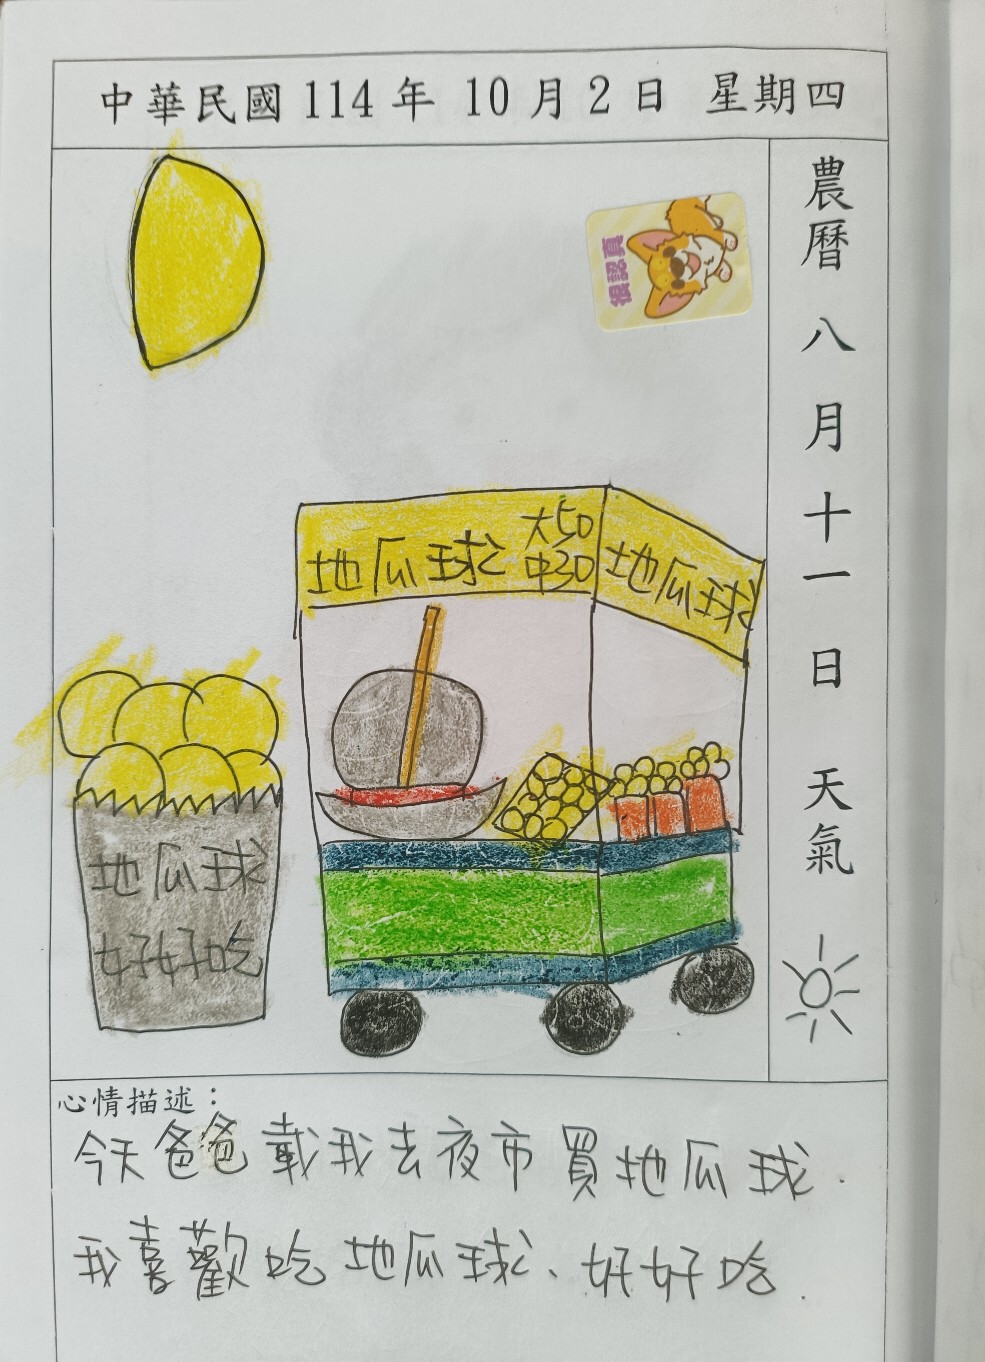 中華民國 114 年 10 月 2 日 星期四
農曆 八月十一日 天氣
很認真
地瓜球 大50 中30
地瓜球
地瓜球
好好吃
心情描述：
今天爸爸載我去夜市買地瓜球.
我喜歡吃地瓜球、好好吃.